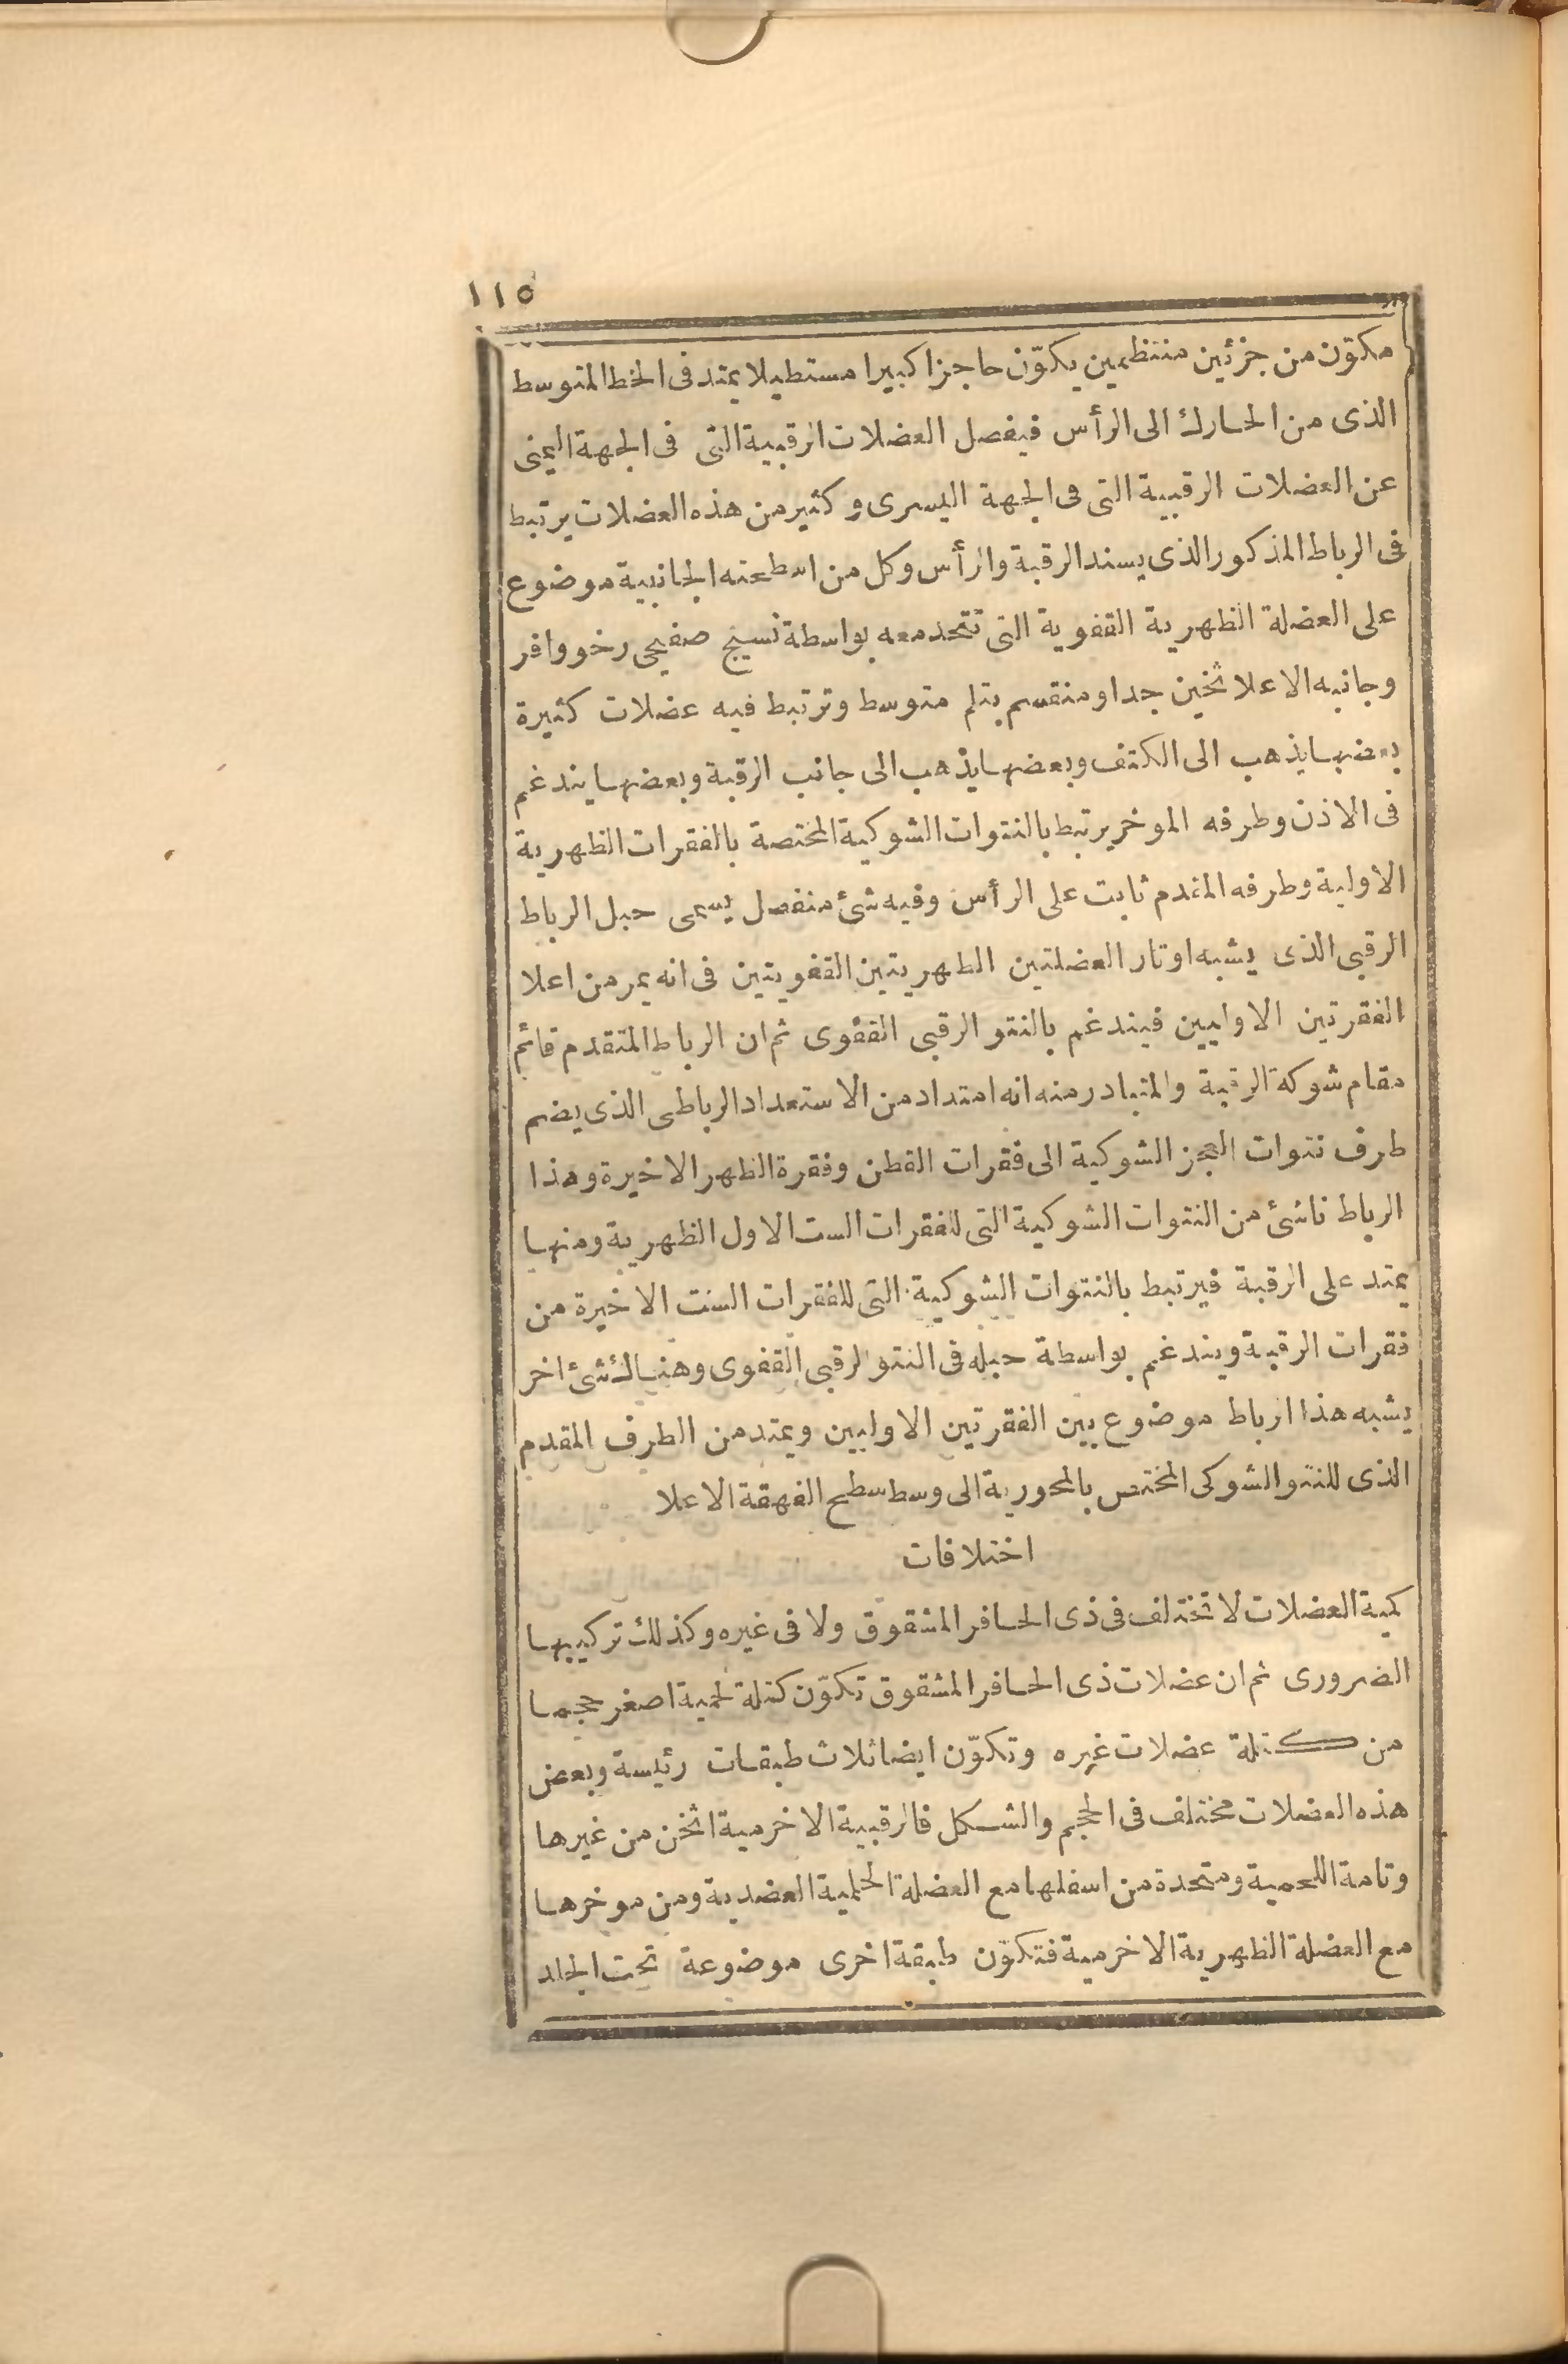 ١١٥
مكوّن من جزئين منتظمين يكوّن حاجزا كبيرا مستطيلا يمتد فى الخط المتوسط
الذى من الحارك الى الرأس فيفصل العضلات الرقبية التى فى الجهة اليمنى
عن العضلات الرقبية التى فى الجهة اليسرى و كثير من هذه العضلات يرتبط
فى الرباط المذكور الذى يسند الرقبة والرأس وكل من اسطحته الجانبية موضوع
على العضلة الظهرية القفوية التى تتحد معه بواسطة نسيج صفيحى رخو وافر
وجانبه الاعلا ثخين جدا ومنقسم بتلم متوسط وترتبط فيه عضلات كثيرة
بعضها يذهب الى الكتف وبعضها يذهب الى جانب الرقبة وبعضها يندغم
فى الاذن وطرفه الموخر يرتبط بالنتوات الشوكية المختصة بالفقرات الظهرية
الاولية وطرفه المقدم ثابت على الرأس وفيه شئ منفصل يسمى حبل الرباط
الرقبى الذى يشبه اوتار العضلتين الظهريتين القفويتين فى انه يمر من اعلا
الفقرتين الاوليين فيندغم بالنتو الرقبى القفوى ثم ان الرباط المتقدم قائم
مقام شوكة الرقبة والمتبادر منه انه امتداد من الاستعداد الرباطى الذى يضم
طرف نتوات العجز الشوكية الى فقرات القطن وفقرة الظهر الاخيرة وهذا
الرباط ناشئ من النتوات الشوكية التى للفقرات الست الاول الظهرية ومنها
يمتد على الرقبة فيرتبط بالنتوات الشوكية التى للفقرات الست الاخيرة من
فقرات الرقبة ويندغم بواسطة حبله فى النتو الرقبى القفوى وهناك شئ اخر
يشبه هذا الرباط موضوع بين الفقرتين الاوليين ويمتد من الطرف المقدم
الذى للنتو الشوكى المختص بالمحورية الى وسط سطح الفهقة الاعلا
اختلافات
كمية العضلات لا تختلف فى ذى الحافر المشقوق ولا فى غيره وكذلك تركيبها
الضرورى ثم ان عضلات ذى الحافر المشقوق تكوّن كتلة لحمية اصغر حجما
من كتلة عضلات غيره وتكوّن ايضا ثلاث طبقات رئيسة وبعض
هذه العضلات مختلف فى الحجم والشكل فالرقبية الاخرمية اثخن من غيرها
وتامة اللحمية ومتحدة من اسفلها مع العضلة الحلمية العضدية ومن موخرها
مع العضلة الظهرية الاخرمية فتكوّن طبقة اخرى موضوعة تحت الجلد